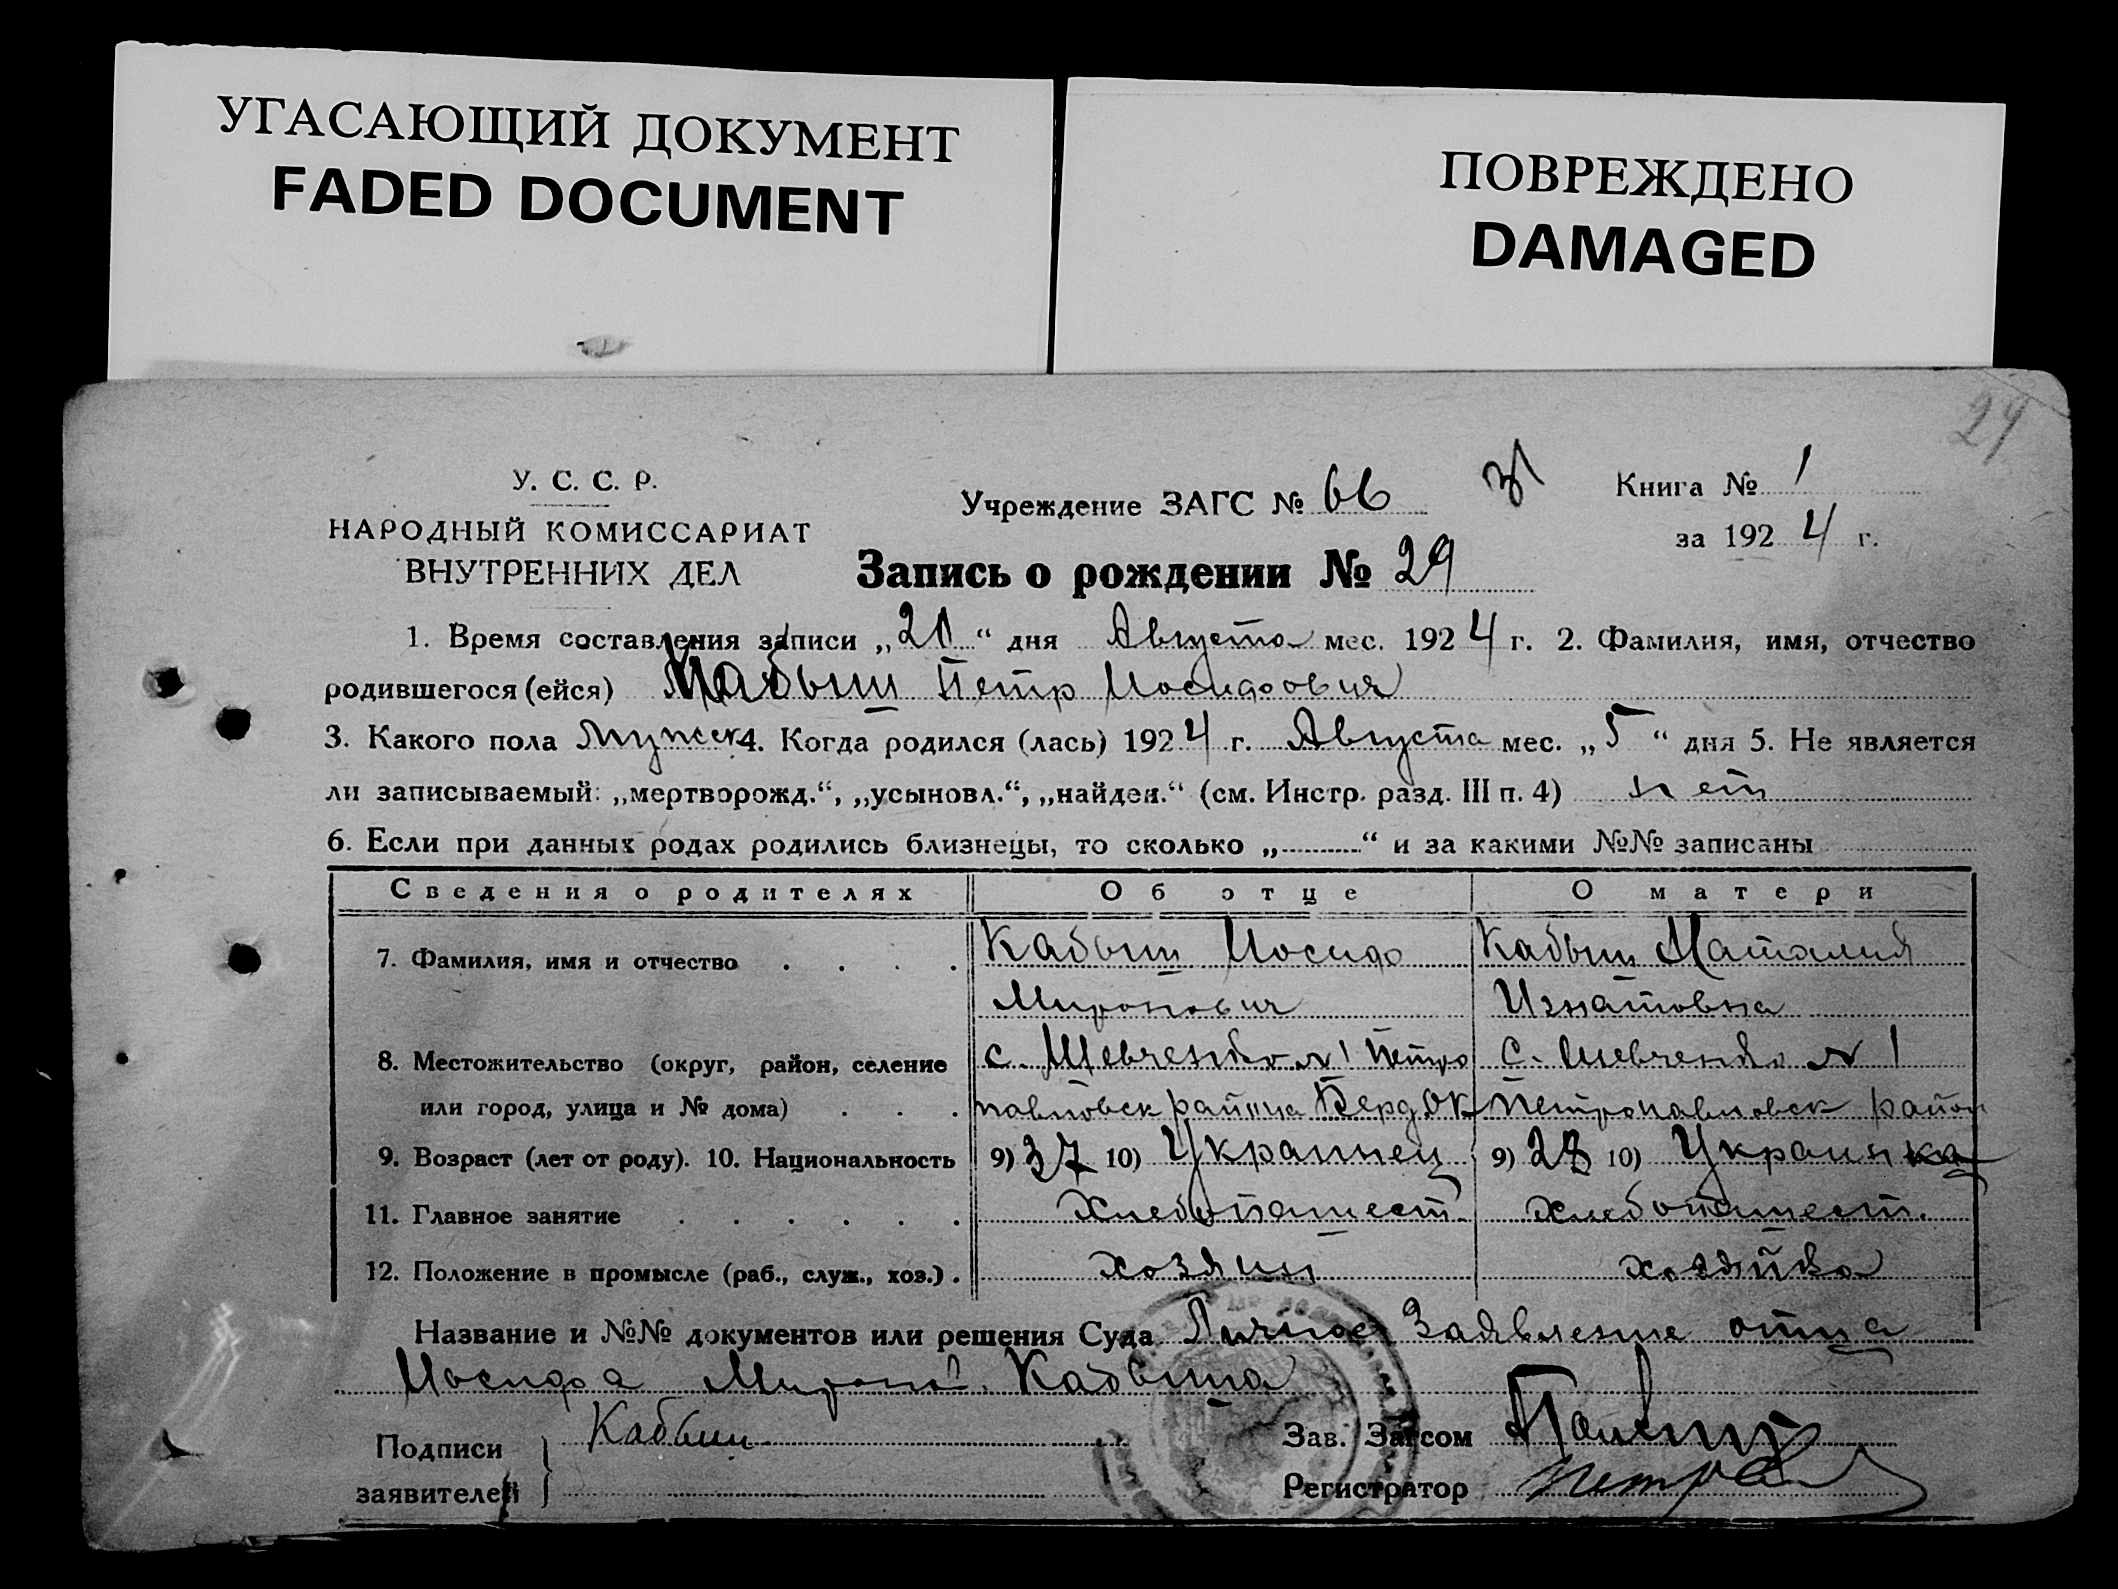 УГАСАЮЩИЙ ДОКУМЕНТ
FADED DOCUMENT
ПОВРЕЖДЕНО
DAMAGED
29
У. С. С. Р.
НАРОДНЫЙ КОМИССАРИАТ
ВНУТРЕННИХ ДЕЛ
Учреждение ЗАГС № 66
Книга № 1
за 1924 г.
Запись о рождении № 29
1. Время составления записи „20“ дня Августа мес. 1924 г. 2. Фамилия, имя, отчество
родившегося (ейся) Кабыш Петр Иосифович
3. Какого пола Мужск 4. Когда родился (лась) 1924 г. Августа мес. „5“ дня 5. Не является
ли записываемый: „мертворожд.“, „усыновл.“, „найден.“ (см. Инстр. разд. III п. 4) нет
6. Если при данных родах родились близнецы, то сколько „..........“ и за какими №№ записаны
Сведения о родителях Об отце О матери
7. Фамилия, имя и отчество . . . . Кабыш Иосиф Кабыш Наталия
Миронович Игнатовна
8. Местожительство (округ, район, селение с. Шевченко № 1 Петро С. Шевченко № 1
или город, улица и № дома) . . . павловск района Берд. Ок Петропавловск район
9. Возраст (лет от роду). 10. Национальность 9) 37 10) Украинец 9) 28 10) Украинка
11. Главное занятие . . . . . . Хлебопашест. Хлебопашест.
12. Положение в промысле (раб., служ., хоз.) . хозяин хозяйка
Название и №№ документов или решения Суда Личное Заявление отца
Иосифа Мирон. Кабыша
Подписи Кабыш
заявителей
Зав. Загсом
Регистратор